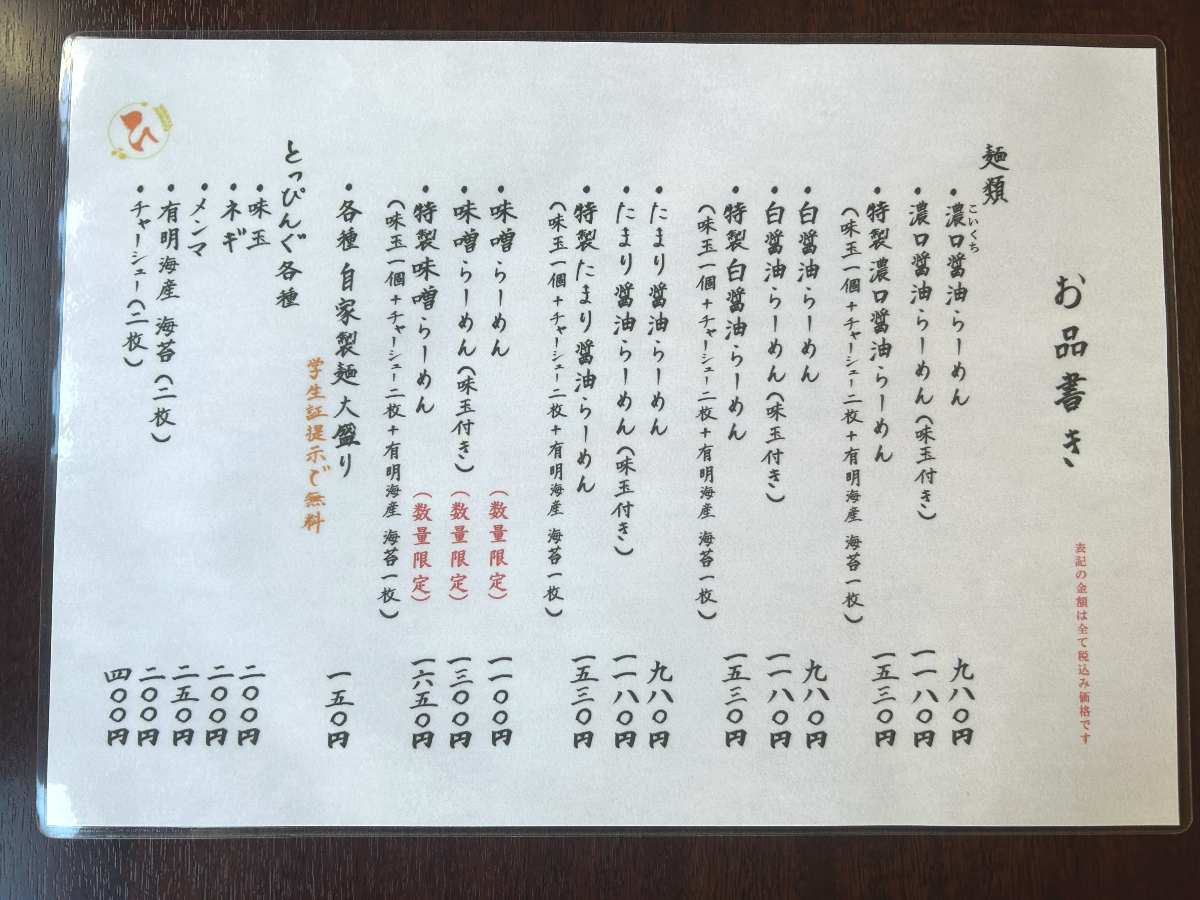 お品書き
表記の金額は全て税込み価格です
麺類
・濃口醤油らーめん 九八〇円
こいくち
・濃口醤油らーめん(味玉付き) 一一八〇円
・特製濃口醤油らーめん 一五三〇円
(味玉一個+チャーシュー二枚+有明海産 海苔一枚)
・白醤油らーめん 九八〇円
・白醤油らーめん(味玉付き) 一一八〇円
・特製白醤油らーめん 一五三〇円
(味玉一個+チャーシュー二枚+有明海産 海苔一枚)
・たまり醤油らーめん 九八〇円
・たまり醤油らーめん(味玉付き) 一一八〇円
・特製たまり醤油らーめん 一五三〇円
(味玉一個+チャーシュー二枚+有明海産 海苔一枚)
・味噌らーめん (数量限定) 一一〇〇円
・味噌らーめん(味玉付き) (数量限定) 一三〇〇円
・特製味噌らーめん (数量限定) 一六五〇円
(味玉一個+チャーシュー二枚+有明海産 海苔一枚)
・各種 自家製麺大盛り 一五〇円
学生証提示で無料
とっぴんぐ各種
・味玉 二〇〇円
・ネギ 二〇〇円
・メンマ 二五〇円
・有明海産 海苔(二枚) 二〇〇円
・チャーシュー(二枚) 四〇〇円
ひ